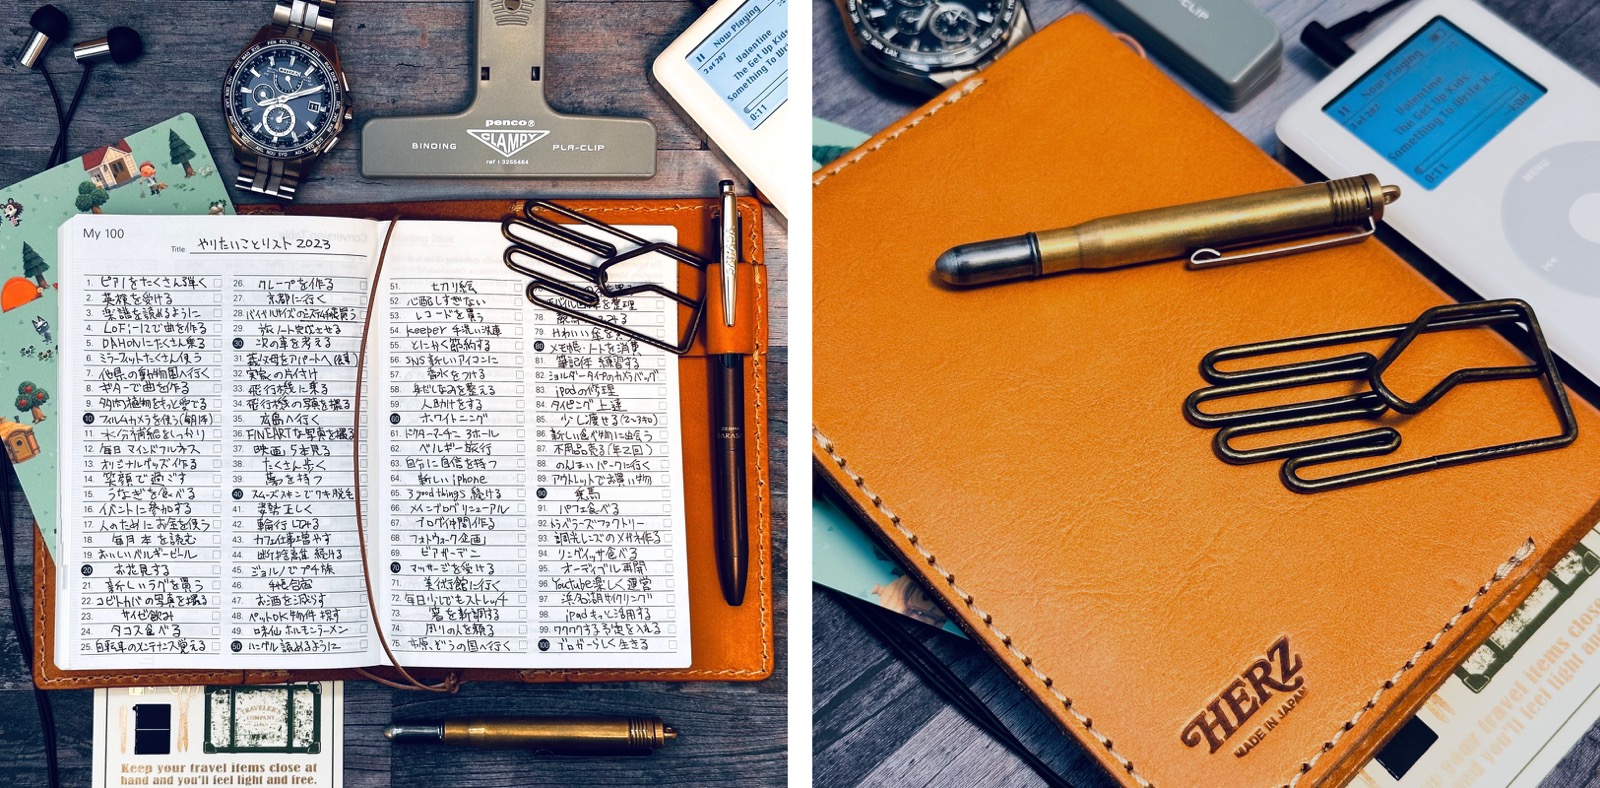 penco®
CLAMPY
BINDING
PLA-CLIP
ref : 3255464
CITIZEN
Now Playing
3 of 287
Valentine
The Get Up Kids
Something To Write
0:11
My 100
Title: やりたいことリスト 2023
1. ピアノをたくさん弾く
2. 英検を受ける
3. 楽譜を読めるように
4. LoFi-12で曲を作る
5. DAHONにたくさん乗る
6. ミラーフィットたくさん使う
7. 他県の動物園へ行く
8. ギターで曲を作る
9. 多肉植物をもっと愛でる
10 フィルムカメラを使う
11. 水分補給をしっかり
12. 毎日マインドフルネス
13. オリジナルグッズ作る
14. 笑顔で過ごす
15. うなぎを食べる
16. イベントに参加する
17. 人のためにお金を使う
18. 毎月本を読む
19. おいしいベルギービール
20 お花見する
21. 新しいラグを買う
22. コビトカバの写真を撮る
23. サイゼ飲み
24. タコス食べる
25. 自転車のメンテナンス覚える
26. クレープを作る
27. 京都に行く
28. バイブルサイズのシステム手帳買う
29. 旅ノート完成させる
30 次の車を考える
31.
32. 実家の片付け
33. 飛行機に乗る
34. 飛行機の写真を撮る
35. 広島へ行く
36. FINEARTな写真を撮る
37. 映画5本見る
38. たくさん歩く
39. 鳥を持つ
40 スムーズスキンでワキ脱毛
41. 姿勢正しく
42. 輪行してみる
43. カフェ仕事増やす
44. 断捨離続ける
45. ジョルノでプチ旅
46. 手帳合宿
47. お酒を減らす
48. ペットOK物件探す
49. 味仙ホルモンラーメン
50 ハングル読めるように
51. 切り絵
52. 心配しすぎない
53. レコードを買う
54. keeper 手洗い洗車
55. とにかく節約する
56. SNS新しいアイコンに
57. 香水をつける
58. 身だしなみを整える
59. 人助けをする
60 ホワイトニング
61. ドクターマーチン 3ホール
62. ベルギー旅行
63. 自分に自信を持つ
64. 新しいiphone
65. 3 good things 続ける
66. メインブログリニューアル
67. ブログ仲間作る
68. フォトウォーク企画
69. ビアガーデン
70 マッサージを受ける
71. 美術館に行く
72. 毎日少しでもストレッチ
73. 箸を新調する
74. 周りの人を頼る
75. 市原ぞうの国へ行く
78.
79. かわいい傘を
80 メモ帳・ノートを消費
81. 筆記体練習する
82. ショルダータイプのカメラバッグ
83. ipodの修理
84. タイピング上達
85. 少し痩せる(2〜3キロ)
86. 新しい食べ物に出会う
87. 不用品売る(年2回)
88. のんほいパークに行く
89. アウトレットでお買い物
90 乗馬
91. パフェ食べる
92. トラベラーズファクトリー
93. 調光レンズのメガネ作る
94. リングイッサ食べる
95. オーディブル再開
96. Youtube楽しく運営
97. 浜名湖サイクリング
98. ipadもっと活用する
99. ワクワクする予定を入れる
100 ブロガーらしく生きる
TRAVELER'S
COMPANY
Keep your travel items close at
hand and you'll feel light and free.
CLIP
Now Playing
Valentine
The Get Up Kids
Something To Write It...
0:11
MENU
HERZ
MADE IN JAPAN